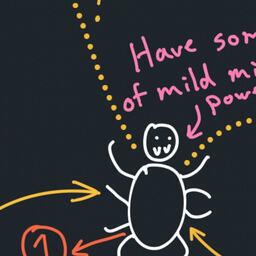 Have som
of mild mi
powe
1